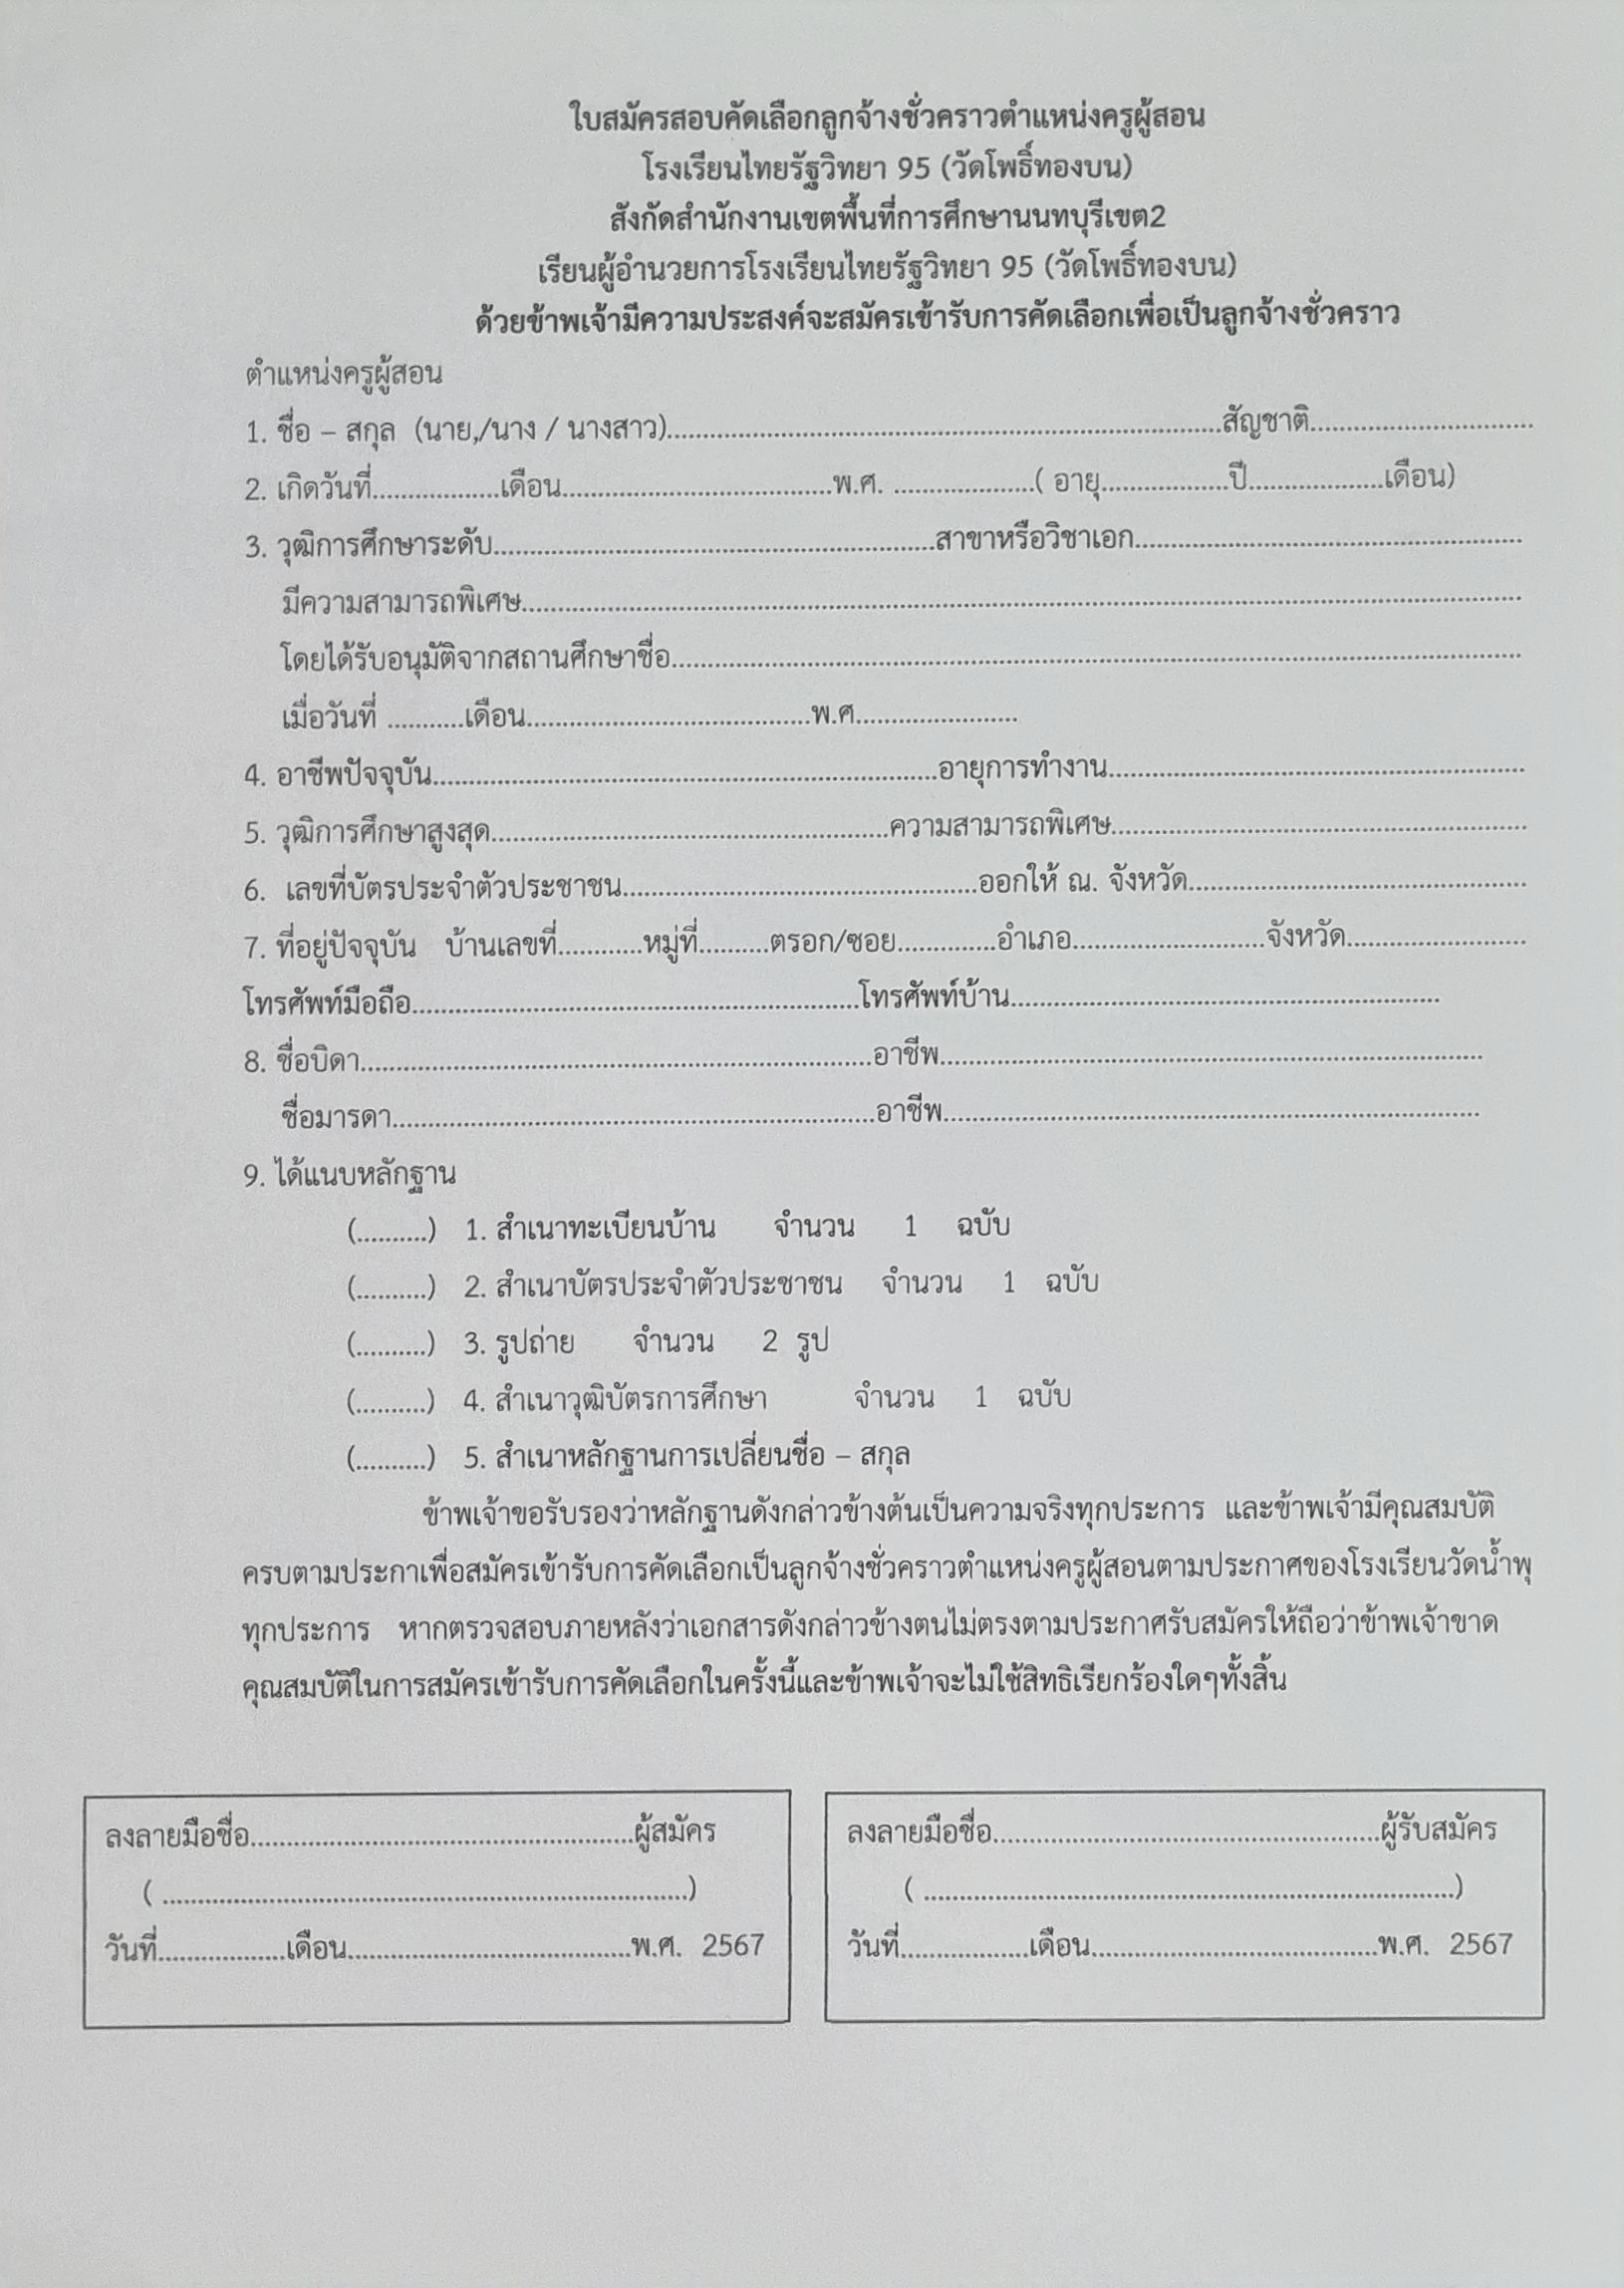 ใบสมัครสอบคัดเลือกลูกจ้างชั่วคราวตำแหน่งครูผู้สอน
โรงเรียนไทยรัฐวิทยา 95 (วัดโพธิ์ทองบน)
สังกัดสำนักงานเขตพื้นที่การศึกษานนทบุรีเขต2
เรียนผู้อำนวยการโรงเรียนไทยรัฐวิทยา 95 (วัดโพธิ์ทองบน)
ด้วยข้าพเจ้ามีความประสงค์จะสมัครเข้ารับการคัดเลือกเพื่อเป็นลูกจ้างชั่วคราว
ตำแหน่งครูผู้สอน
1. ชื่อ – สกุล (นาย,/นาง / นางสาว)..............................................................................สัญชาติ...............................
2. เกิดวันที่..................เดือน......................................พ.ศ. ....................( อายุ..................ปี...................เดือน)
3. วุฒิการศึกษาระดับ..............................................................สาขาหรือวิชาเอก......................................................
มีความสามารถพิเศษ............................................................................................................................................
โดยได้รับอนุมัติจากสถานศึกษาชื่อ.......................................................................................................................
เมื่อวันที่ ...........เดือน........................................พ.ศ.......................
4. อาชีพปัจจุบัน.......................................................................อายุการทำงาน..........................................................
5. วุฒิการศึกษาสูงสุด........................................................ความสามารถพิเศษ..........................................................
6. เลขที่บัตรประจำตัวประชาชน..................................................ออกให้ ณ. จังหวัด...............................................
7. ที่อยู่ปัจจุบัน บ้านเลขที่............หมู่ที่..........ตรอก/ซอย..............อำเภอ...........................จังหวัด.........................
โทรศัพท์มือถือ...............................................................โทรศัพท์บ้าน............................................................
8. ชื่อบิดา........................................................................อาชีพ............................................................................
ชื่อมารดา....................................................................อาชีพ...........................................................................
9. ได้แนบหลักฐาน
(..........) 1. สำเนาทะเบียนบ้าน จำนวน 1 ฉบับ
(..........) 2. สำเนาบัตรประจำตัวประชาชน จำนวน 1 ฉบับ
(..........) 3. รูปถ่าย จำนวน 2 รูป
(..........) 4. สำเนาวุฒิบัตรการศึกษา จำนวน 1 ฉบับ
(..........) 5. สำเนาหลักฐานการเปลี่ยนชื่อ – สกุล
ข้าพเจ้าขอรับรองว่าหลักฐานดังกล่าวข้างต้นเป็นความจริงทุกประการ และข้าพเจ้ามีคุณสมบัติ
ครบตามประกาเพื่อสมัครเข้ารับการคัดเลือกเป็นลูกจ้างชั่วคราวตำแหน่งครูผู้สอนตามประกาศของโรงเรียนวัดน้ำพุ
ทุกประการ หากตรวจสอบภายหลังว่าเอกสารดังกล่าวข้างตนไม่ตรงตามประกาศรับสมัครให้ถือว่าข้าพเจ้าขาด
คุณสมบัติในการสมัครเข้ารับการคัดเลือกในครั้งนี้และข้าพเจ้าจะไม่ใช้สิทธิเรียกร้องใดๆทั้งสิ้น
ลงลายมือชื่อ......................................................ผู้สมัคร
( ..........................................................................)
วันที่..................เดือน........................................พ.ศ. 2567
ลงลายมือชื่อ......................................................ผู้รับสมัคร
( ..........................................................................)
วันที่..................เดือน........................................พ.ศ. 2567